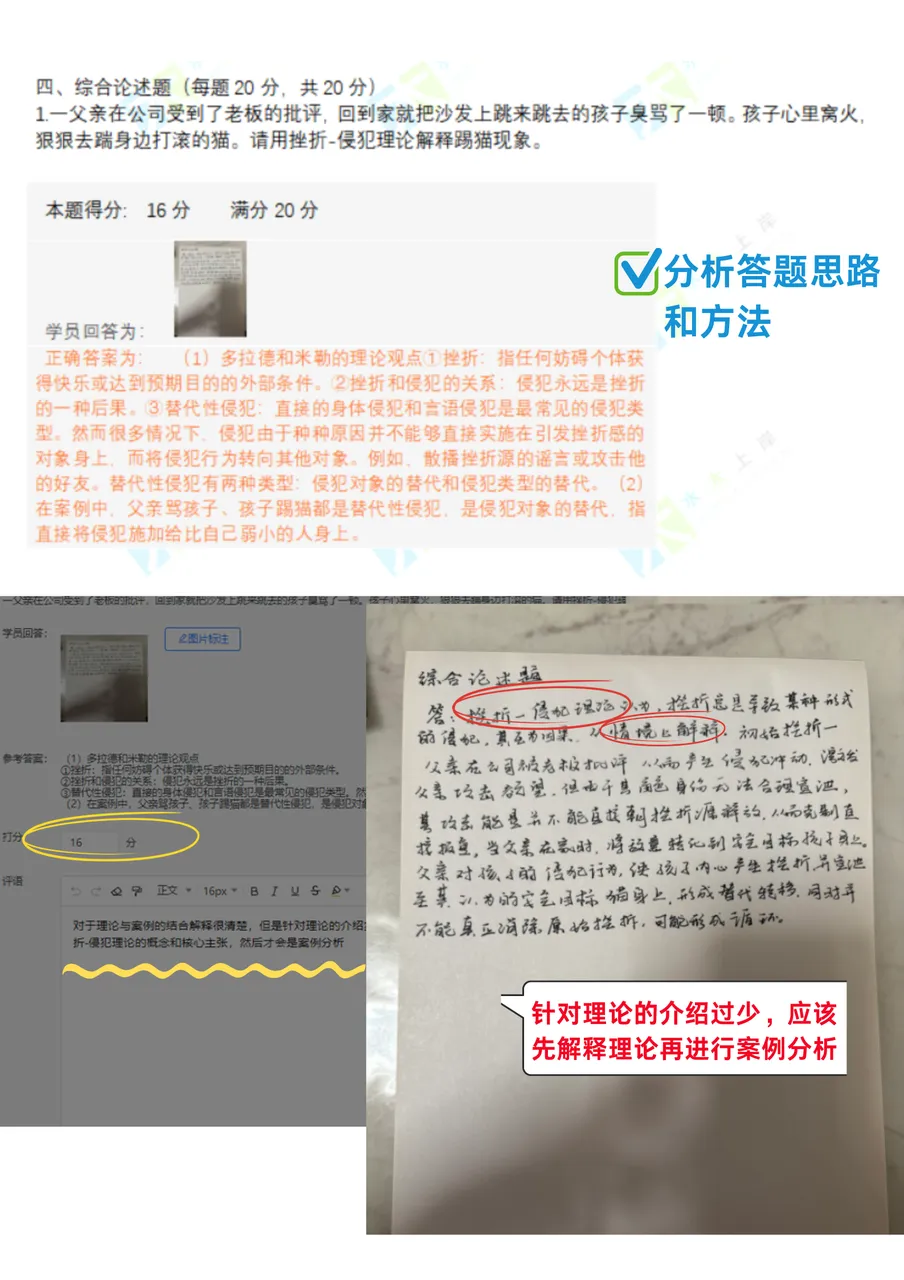 四、综合论述题（每题 20 分，共 20 分）
1.一父亲在公司受到了老板的批评，回到家就把沙发上跳来跳去的孩子臭骂了一顿。孩子心里窝火，
狠狠去踹身边打滚的猫。请用挫折-侵犯理论解释踢猫现象。
本题得分： 16 分 满分 20 分
学员回答为：
分析答题思路
和方法
正确答案为： （1）多拉德和米勒的理论观点①挫折：指任何妨碍个体获
得快乐或达到预期目的的外部条件。②挫折和侵犯的关系：侵犯永远是挫折
的一种后果。③替代性侵犯：直接的身体侵犯和言语侵犯是最常见的侵犯类
型。然而很多情况下，侵犯由于种种原因并不能够直接实施在引发挫折感的
对象身上，而将侵犯行为转向其他对象。例如，散播挫折源的谣言或攻击他
的好友。替代性侵犯有两种类型：侵犯对象的替代和侵犯类型的替代。（2）
在案例中，父亲骂孩子、孩子踢猫都是替代性侵犯，是侵犯对象的替代，指
直接将侵犯施加给比自己弱小的人身上。
上岸
水 上岸
一父亲在公司受到了老板的批评，回到家就把沙发上跳来跳去的孩子臭骂了一顿。孩子心里窝火，狠狠去踹身边打滚的猫。请用挫折-侵犯理
学员回答：
图片标注
参考答案：
（1）多拉德和米勒的理论观点
①挫折：指任何妨碍个体获得快乐或达到预期目的的外部条件。
②挫折和侵犯的关系：侵犯永远是挫折的一种后果。
③替代性侵犯：直接的身体侵犯和言语侵犯是最常见的侵犯类型。然
（2）在案例中，父亲骂孩子、孩子踢猫都是替代性侵犯，是侵犯对象
打分
16 分
评语
正文 16px B I U S
对于理论与案例的结合解释很清楚，但是针对理论的介绍
折-侵犯理论的概念和核心主张，然后才会是案例分析
综合论述题
答：挫折—侵犯理论认为，挫折总是导致某种形式
的侵犯，其互为因果，从情境上解释，初始挫折一
父亲在公司被老板批评 从而产生侵犯冲动，激发
父亲攻击欲望，但由于角色身份无法合理宣泄，
其攻击能量并不能直接朝挫折源释放，从而克制直
接报复，当父亲在家时，将敌意转化到安全目标孩子身上。
父亲对孩子的侵犯行为，使孩子内心产生挫折，并宣泄
至其认为的安全目标猫身上，形成替代转移，同时并
不能真正消除原始挫折，可能形成循环。
针对理论的介绍过少，应该
先解释理论再进行案例分析